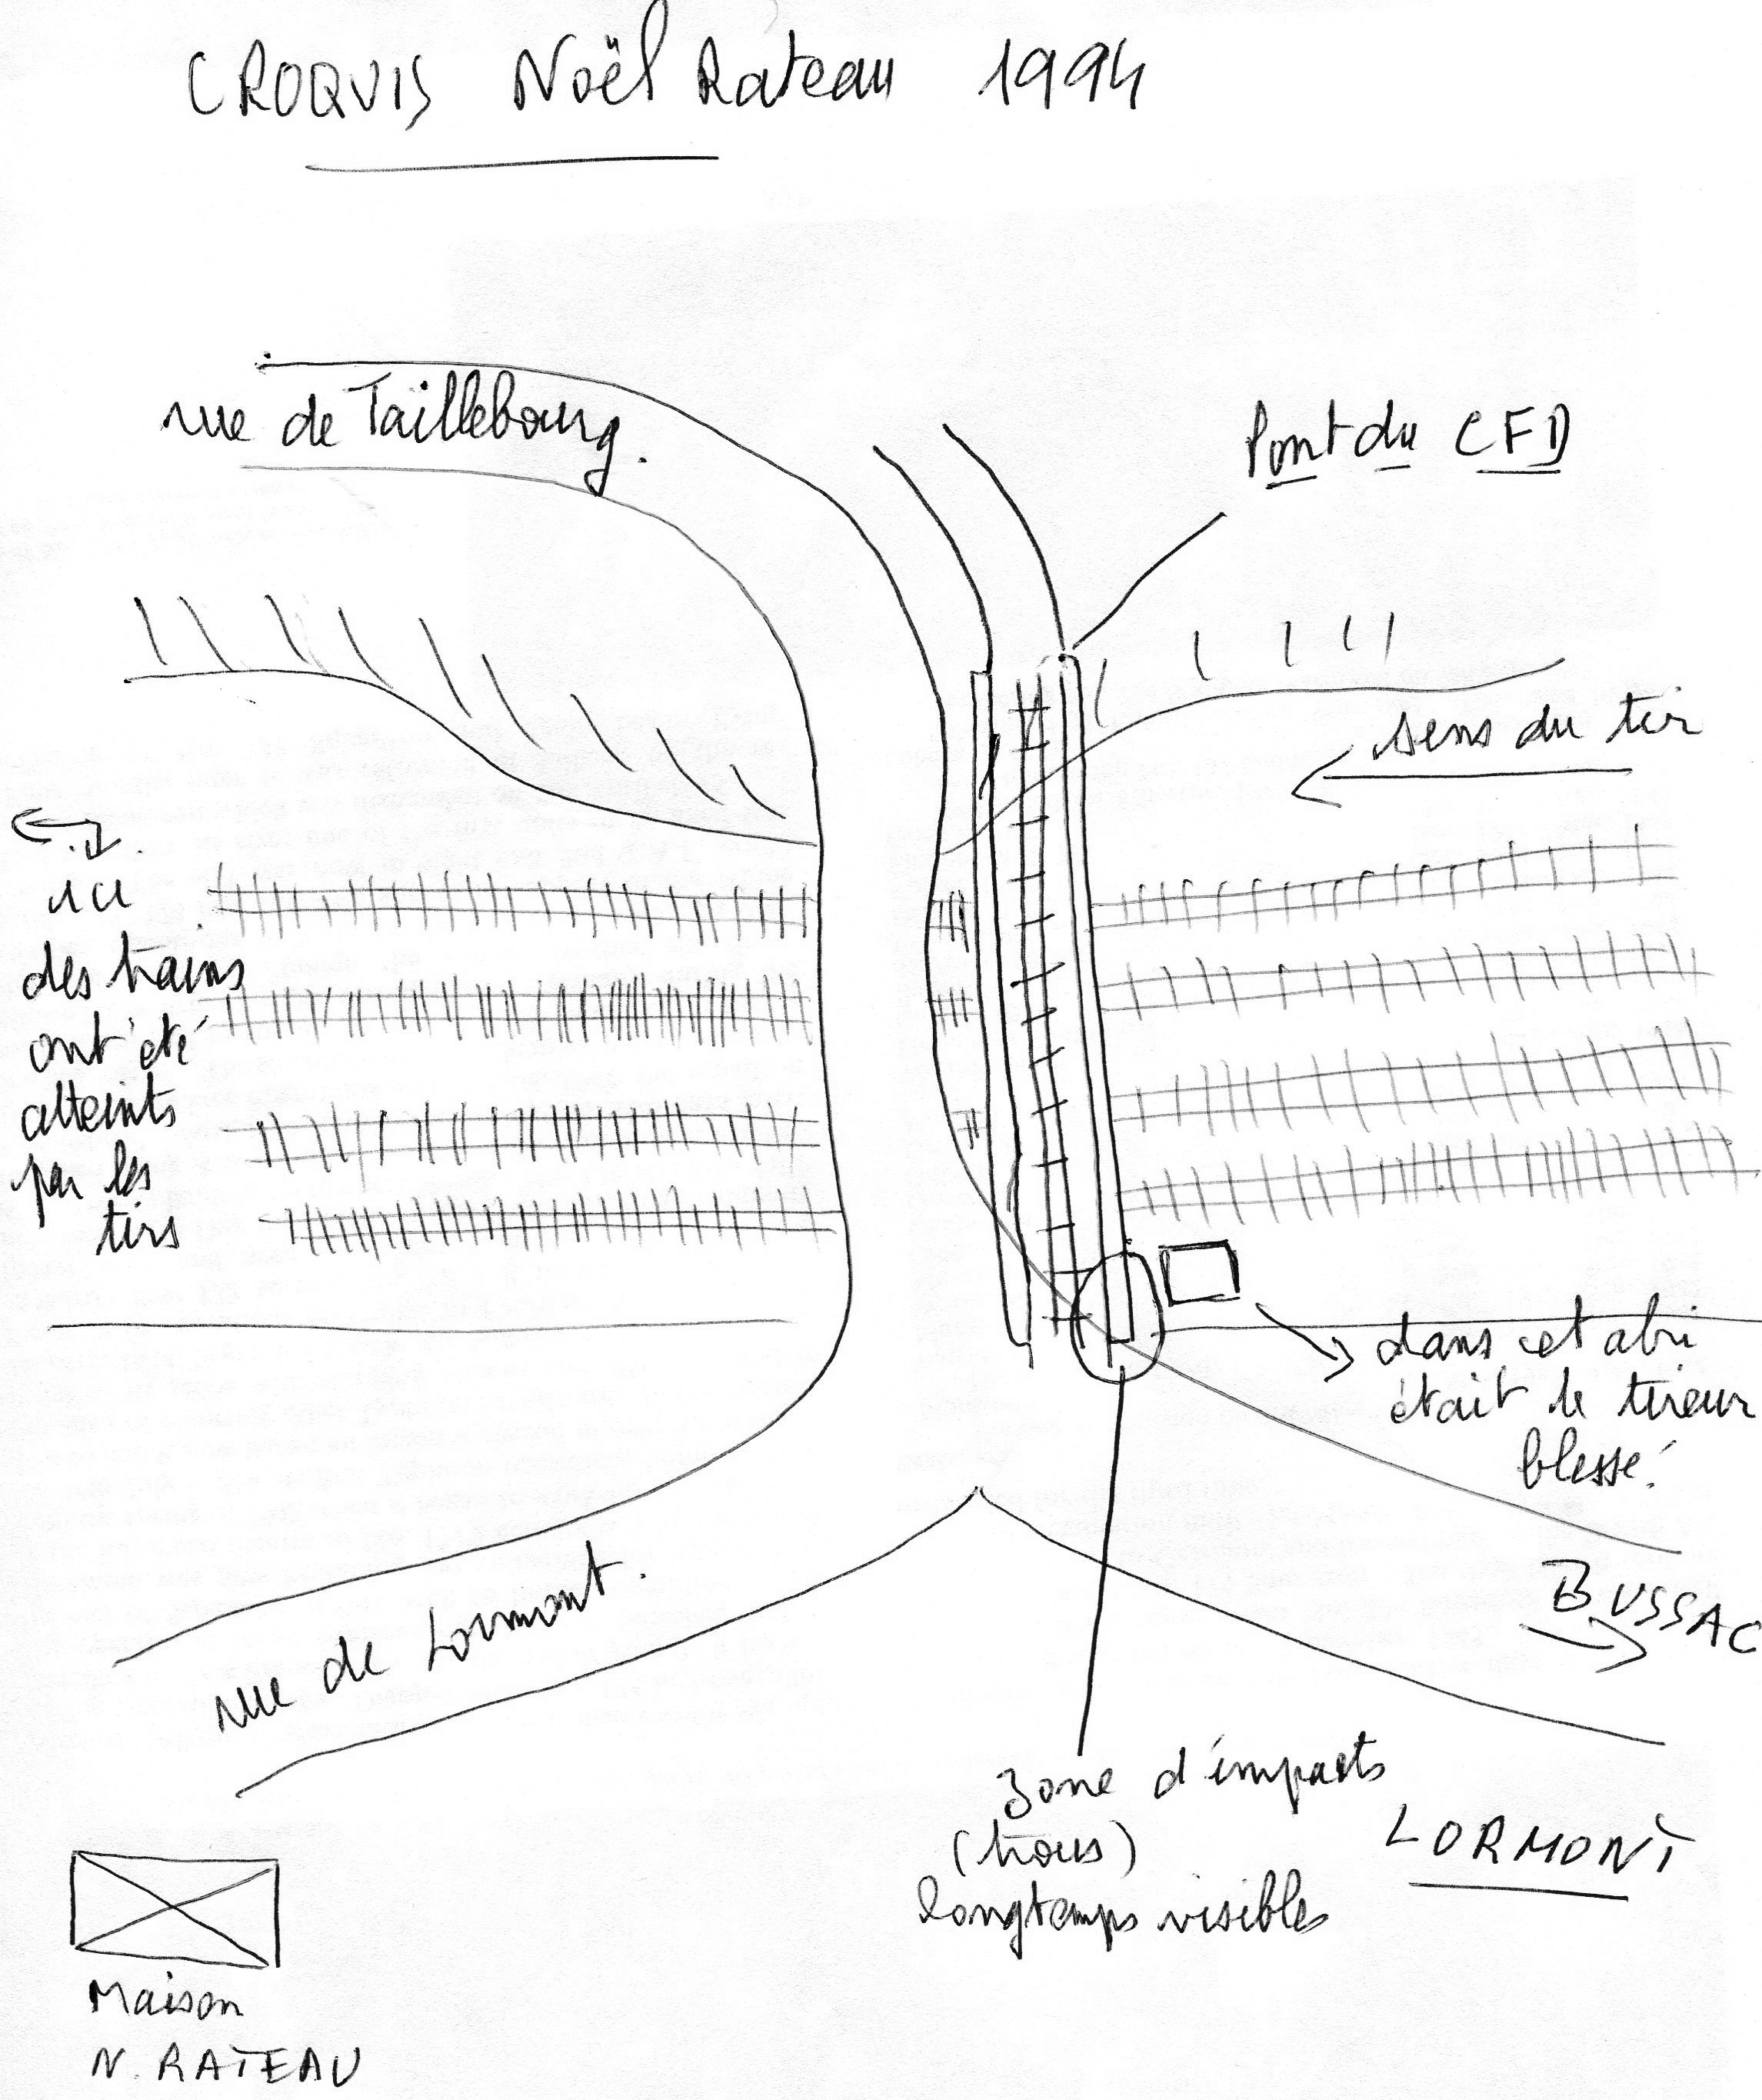 CROQUIS Noël Rateau 1994
rue de Taillebourg.
Pont du CFD
sens du tir
ici
des trains
ont été
atteints
par les
tirs
dans cet abri
était le tireur
blessé.
rue de Lormont.
BUSSAC
Zone d'impacts
(trous)
longtemps visibles
LORMONT
Maison
N. RATEAU